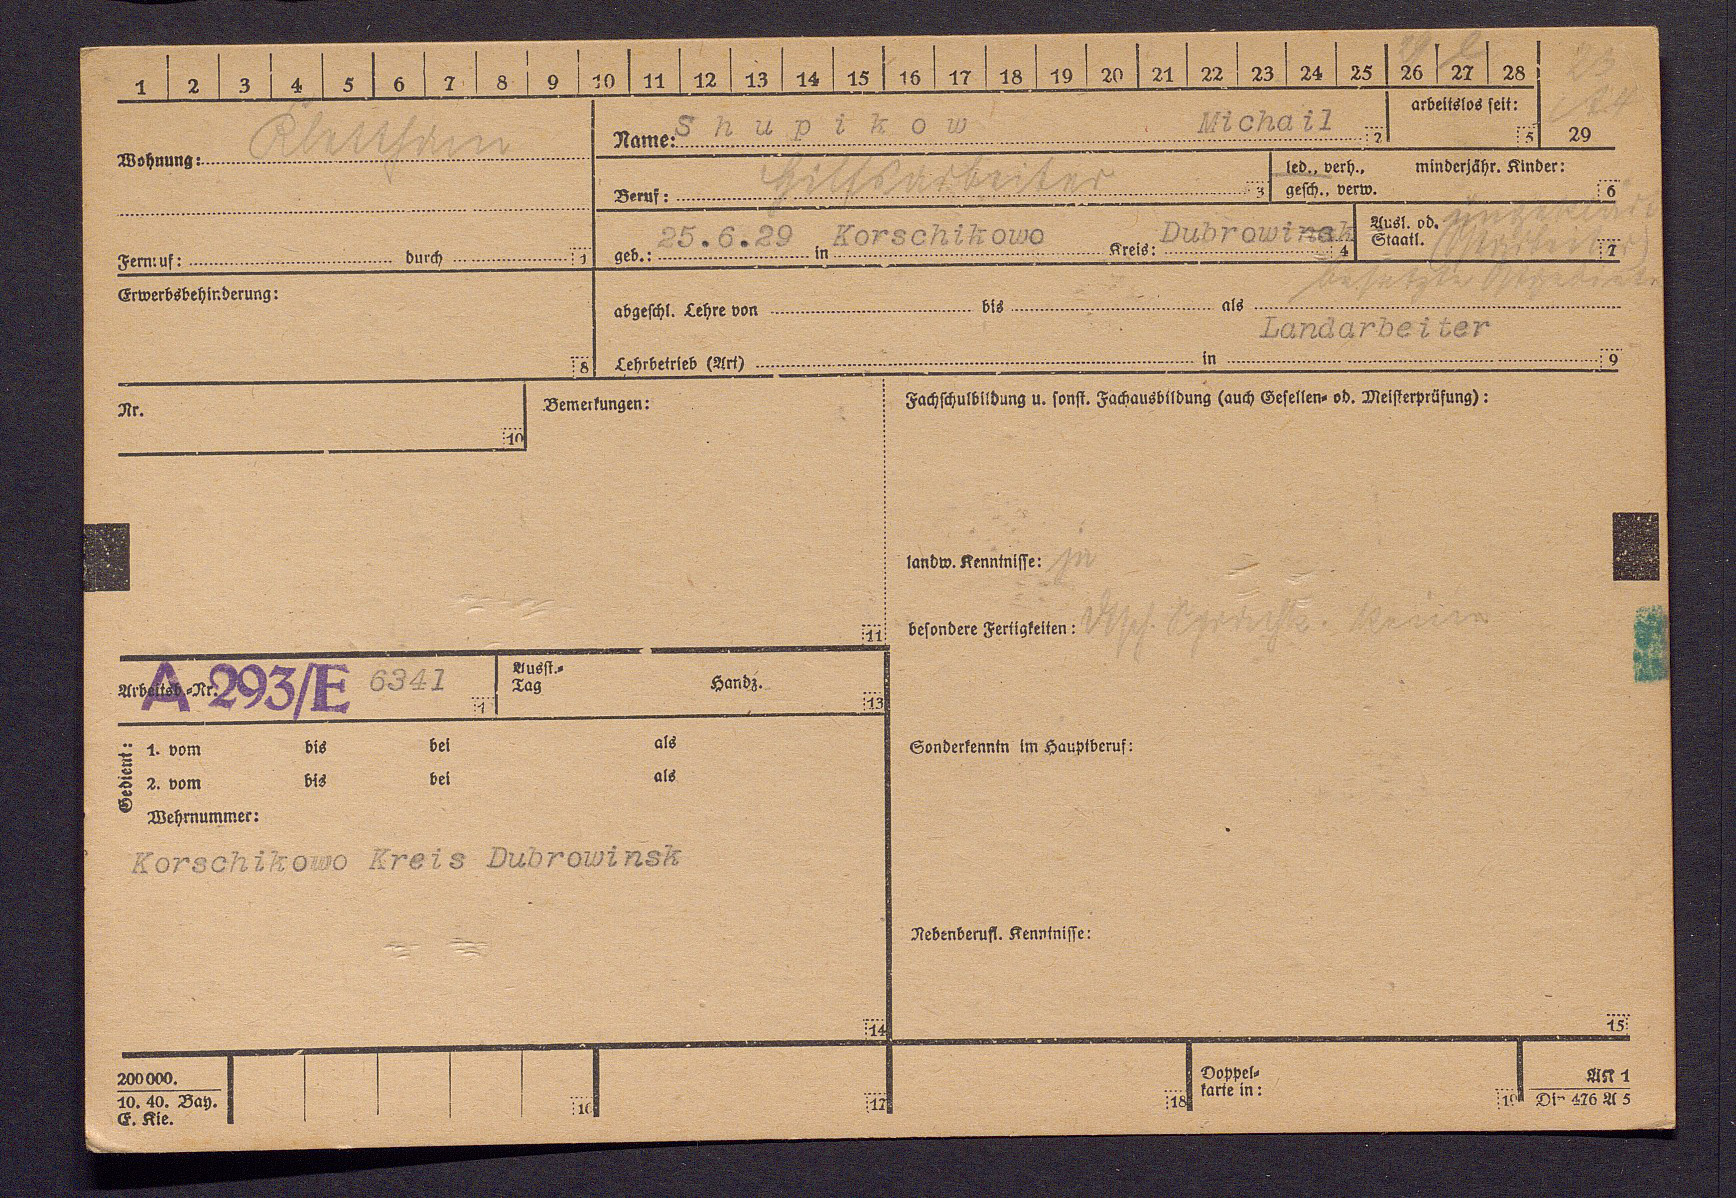 1 2 3 4 5 6 7 8 9 10 11 12 13 14 15 16 17 18 19 20 21 22 23 24 25 26 27 28
Wohnung: Klettham
Name: Shupikow Michail 2
arbeitslos seit: 5
29
Beruf: Hilfsarbeiter 3
led., verh., gesch., verw.
minderjähr. Kinder: 6
Fernruf: durch 1
geb.: 25.6.29 in Korschikowo Kreis: Dubrowinsk 4
Ausl. od. Staatl. ungeklärt (Ostarbeiter) 7
besetzte Ostgebiete
Erwerbsbehinderung: 8
abgeschl. Lehre von bis als
Landarbeiter
Lehrbetrieb (Art) in 9
Nr. 10
Bemerkungen: 11
Fachschulbildung u. sonst. Fachausbildung (auch Gesellen- od. Meisterprüfung):
landw. Kenntnisse: ja
besondere Fertigkeiten: Dtsch. Sprachk. keine
Arbeitsb.-Nr. A 293/E 6341
Ausst.-Tag Handz. 13
Sonderkenntn im Hauptberuf:
Gedient:
1. vom bis bei als
2. vom bis bei als
Wehrnummer:
Korschikowo Kreis Dubrowinsk
14
Nebenberufl. Kenntnisse:
15
200 000.
10. 40. Bay.
E. Kie.
16 17 18
Doppelkarte in: 19
AK 1
Din 476 A 5